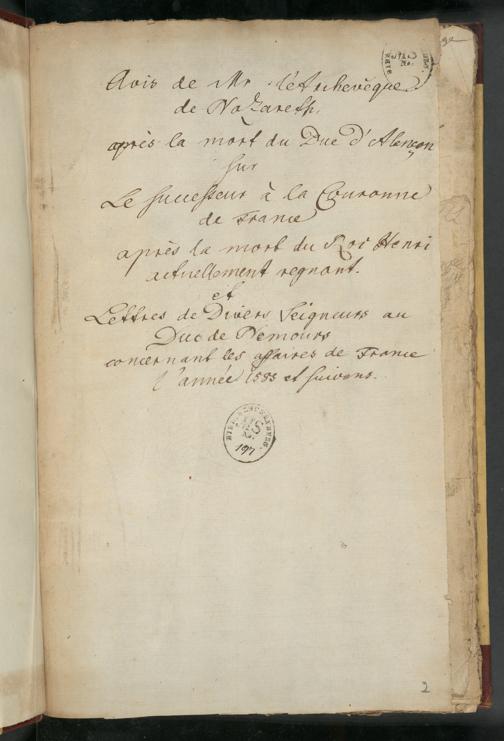 Avis de Mr. l'Archevêque
de Nazareth.
après la mort du Duc d'Alençon
sur
Le successeur à la Couronne
de France
après la mort du Roi Henri
actuellement regnant.
et
Lettres de Divers Seigneurs au
Duc de Nemours
concernant les affaires de France
l'année 1585 et suivans.
MS
197
2